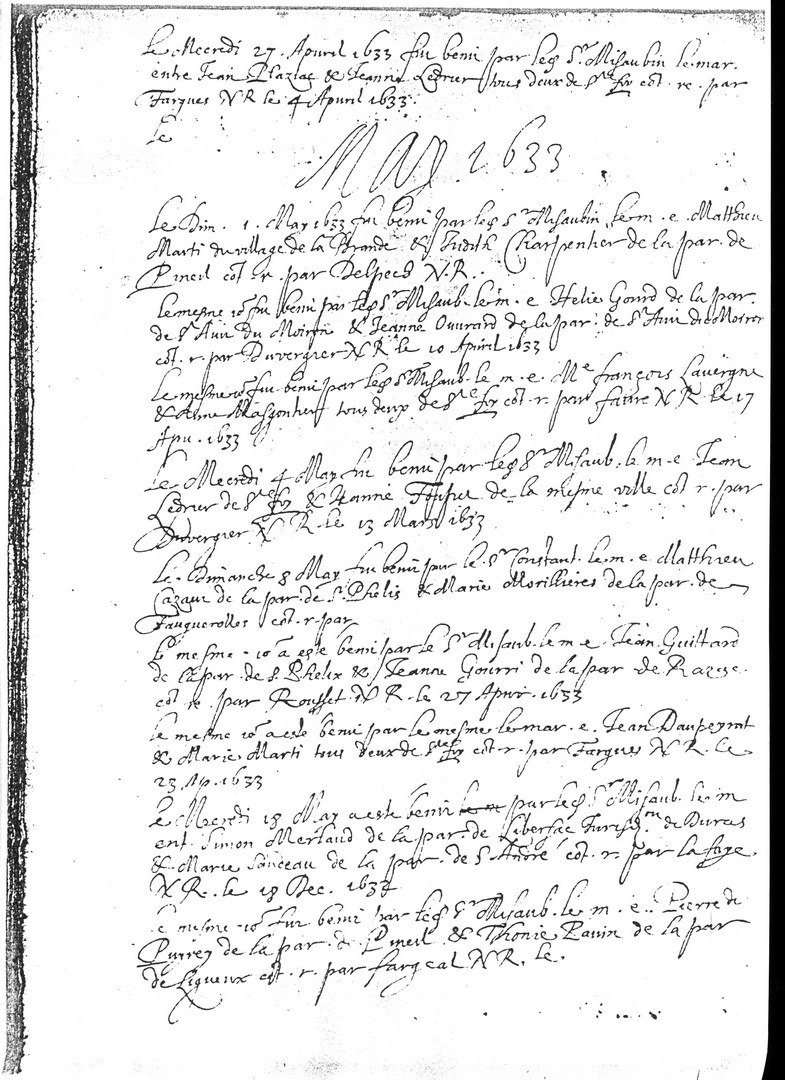 Le Mecredi 27. Apvril 1633 fut beni par led Sr Misaubin le mar.
entre Jean Plazias & Jeanne Ledrier tous deux de Ste foy cot. re. par
Fargues N R le 4 Apvril 1633.
Le
May 1633
Le Dim. 1. May 1633 fut beni par led Sr Misaubin le m. e. Matthieu
Marti du village de la Brande & Judith Charpentier de la par. de
Pineil cot. r. par Delpech N.R.
Le mesme jor fut beni par led Sr Misaub. le m. e Helie Gourd de la par.
de St Avit du Moiron & Jeanne Ouvrard de la par. de St Avit du Moiron
cot. r. par Duvergier N R le 10 Apvril 1633
Le mesme jor fut beni par led Sr Misaub. le m. e. Me françois Lavergne
& Anne tous deux de Ste foy cot. r. par faure N R. le 17
Apv. 1633
Le Mecredi 4 May fut beni par led Sr Misaub. le m. e. Jean
Ledrier de Ste foy & Jeanne de la mesme ville cot. r. par
Duvergier N R. le 13 Mars 1633
Le Dimanche 8 May fut beni par le Sr Constant. le m. e Matthieu
Cazaux de la par. de St Phelis & Marie Morillieres de la par. de
Fauguerolles cot. r. par
Le mesme jor a este beni par le Sr Misaub. le m e. Jean Guittard
de la par. de S. Phelix & Jeanne Gourri de la par de Razac.
cot re. par Rousset N R. le 27 Apvr. 1633
Le mesme jor a este beni par le mesme le mar. e. Jean Daupeyrat
& Marie Marti tous deux de Ste foy cot. r. par Fargues N R. le
23 Ap. 1633
Le Mecredi 18 May a este beni par led Sr Misaub. le m
ent. Simon Merlaud de la par. de Libersac Jurisd.on de Duras
& Marie Sandeau de la par. de St André cot. r. par la faye
N R. le 18 Dec. 1632
Le mesme jor fut beni par led Sr Misaub. le m. e. Pierre de
Puirey de la par. de Pineil & Thonie Pauin de la par
de Ligueux cot. r. par fargeal N R. le.